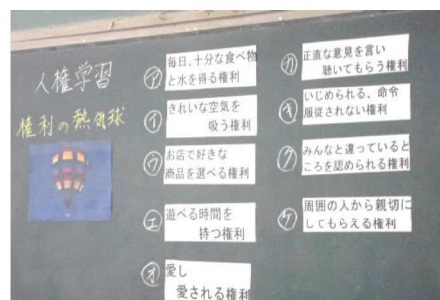 人権学習
権利の熱気球
㋐ 毎日、十分な食べ物
と水を得る権利
㋑ きれいな空気を
吸う権利
㋒ お店で好きな
商品を選べる権利
㋓ 遊べる時間を
持つ権利
㋔ 愛し
愛される権利
㋕ 正直な意見を言い
聴いてもらう権利
㋖ いじめられる、命令
服従されない権利
㋗ みんなと違っていると
ころを認められる権利
㋘ 周囲の人から親切に
してもらえる権利